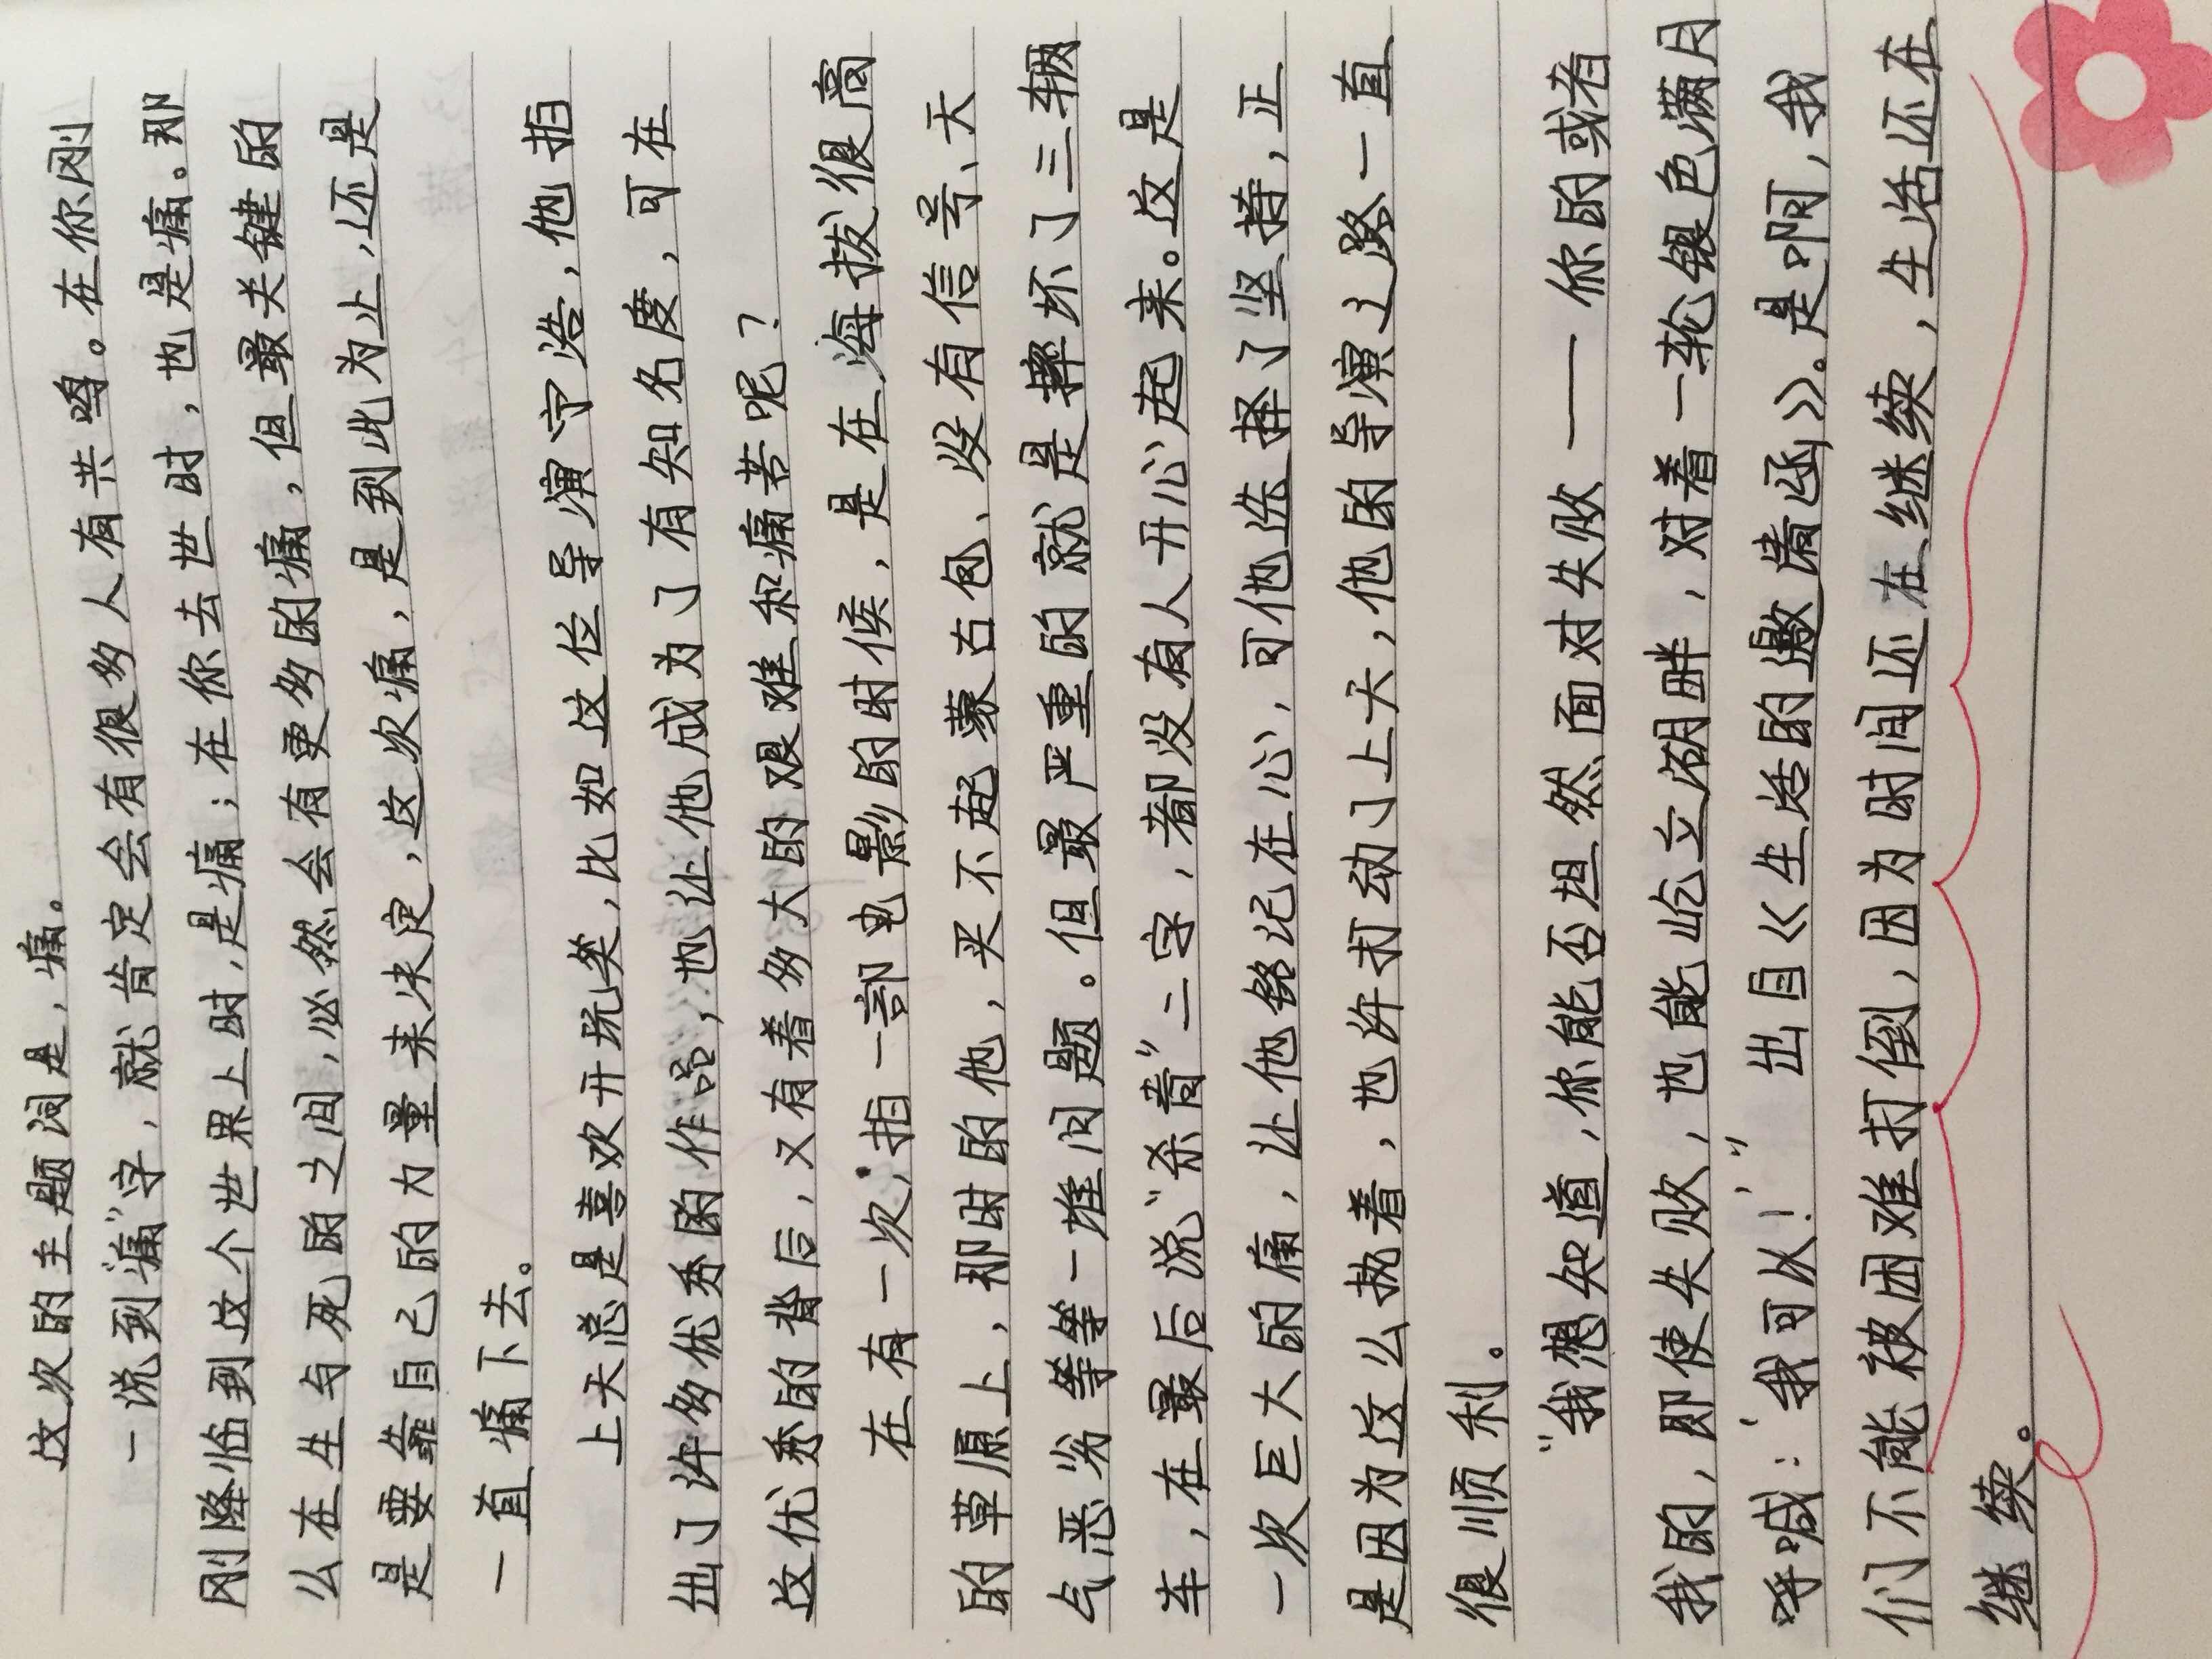 这次的主题词是，痛。
一说到“痛”字，就肯定会有很多人有共鸣。在你刚
刚降临到这个世界上时，是痛；在你去世时，也是痛。那
么在生与死的之间，必然会有更多的痛，但最关键的
是要靠自己的力量来决定，这次痛，是到此为止，还是
一直痛下去。
上天总是喜欢开玩笑，比如这位导演宁浩，他拍
出了许多优秀的作品，也让他成为了有知名度，可在
这优秀的背后，又有着多大的艰难和痛苦呢？
在有一次，拍一部电影的时候，是在海拔很高
的草原上，那时的他，买不起蒙古包、没有信号、天
气恶劣等等一堆问题。但最严重的就是摔坏了三辆
车，在最后说“杀青”二字，都没有人开心起来。这是
一次巨大的痛，让他铭记在心，可他选择了坚持，正
是因为这么执着，也许打动了上天，他的导演之路一直
很顺利。
“我想知道，你能否坦然面对失败——你的或者
我的，即使失败，也能屹立湖畔，对着一轮银色满月
呼喊：‘我可以！’”出自《生活的邀请函》。是啊，我
们不能被困难打倒，因为时间还在继续，生活还在
继续。